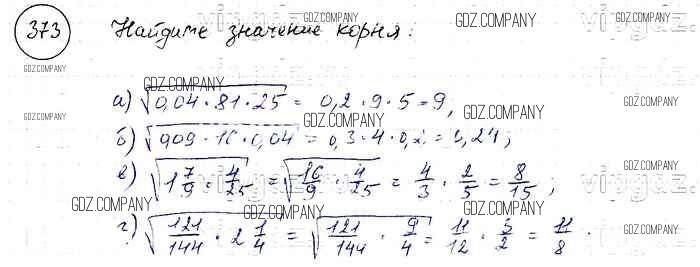 373 Найдите значение корня:
а) √0,04·81·25 = 0,2·9·5=9,
б) √0,09·16·0,04 = 0,3·4·0,2=0,24;
в) √1 7/9 · 4/25 = √16/9 · 4/25 = 4/3 · 2/5 = 8/15;
г) √121/144 · 2 1/4 = √121/144 · 9/4 = 11/12 · 3/2 = 11/8.
GDZ.COMPANY
GDZ.COMPANY
GDZ.COMPANY
GDZ.COMPANY
GDZ.COMPANY
GDZ.COMPANY
GDZ.COMPANY
GDZ.COMPANY
GDZ.COMPANY
GDZ.COMPANY